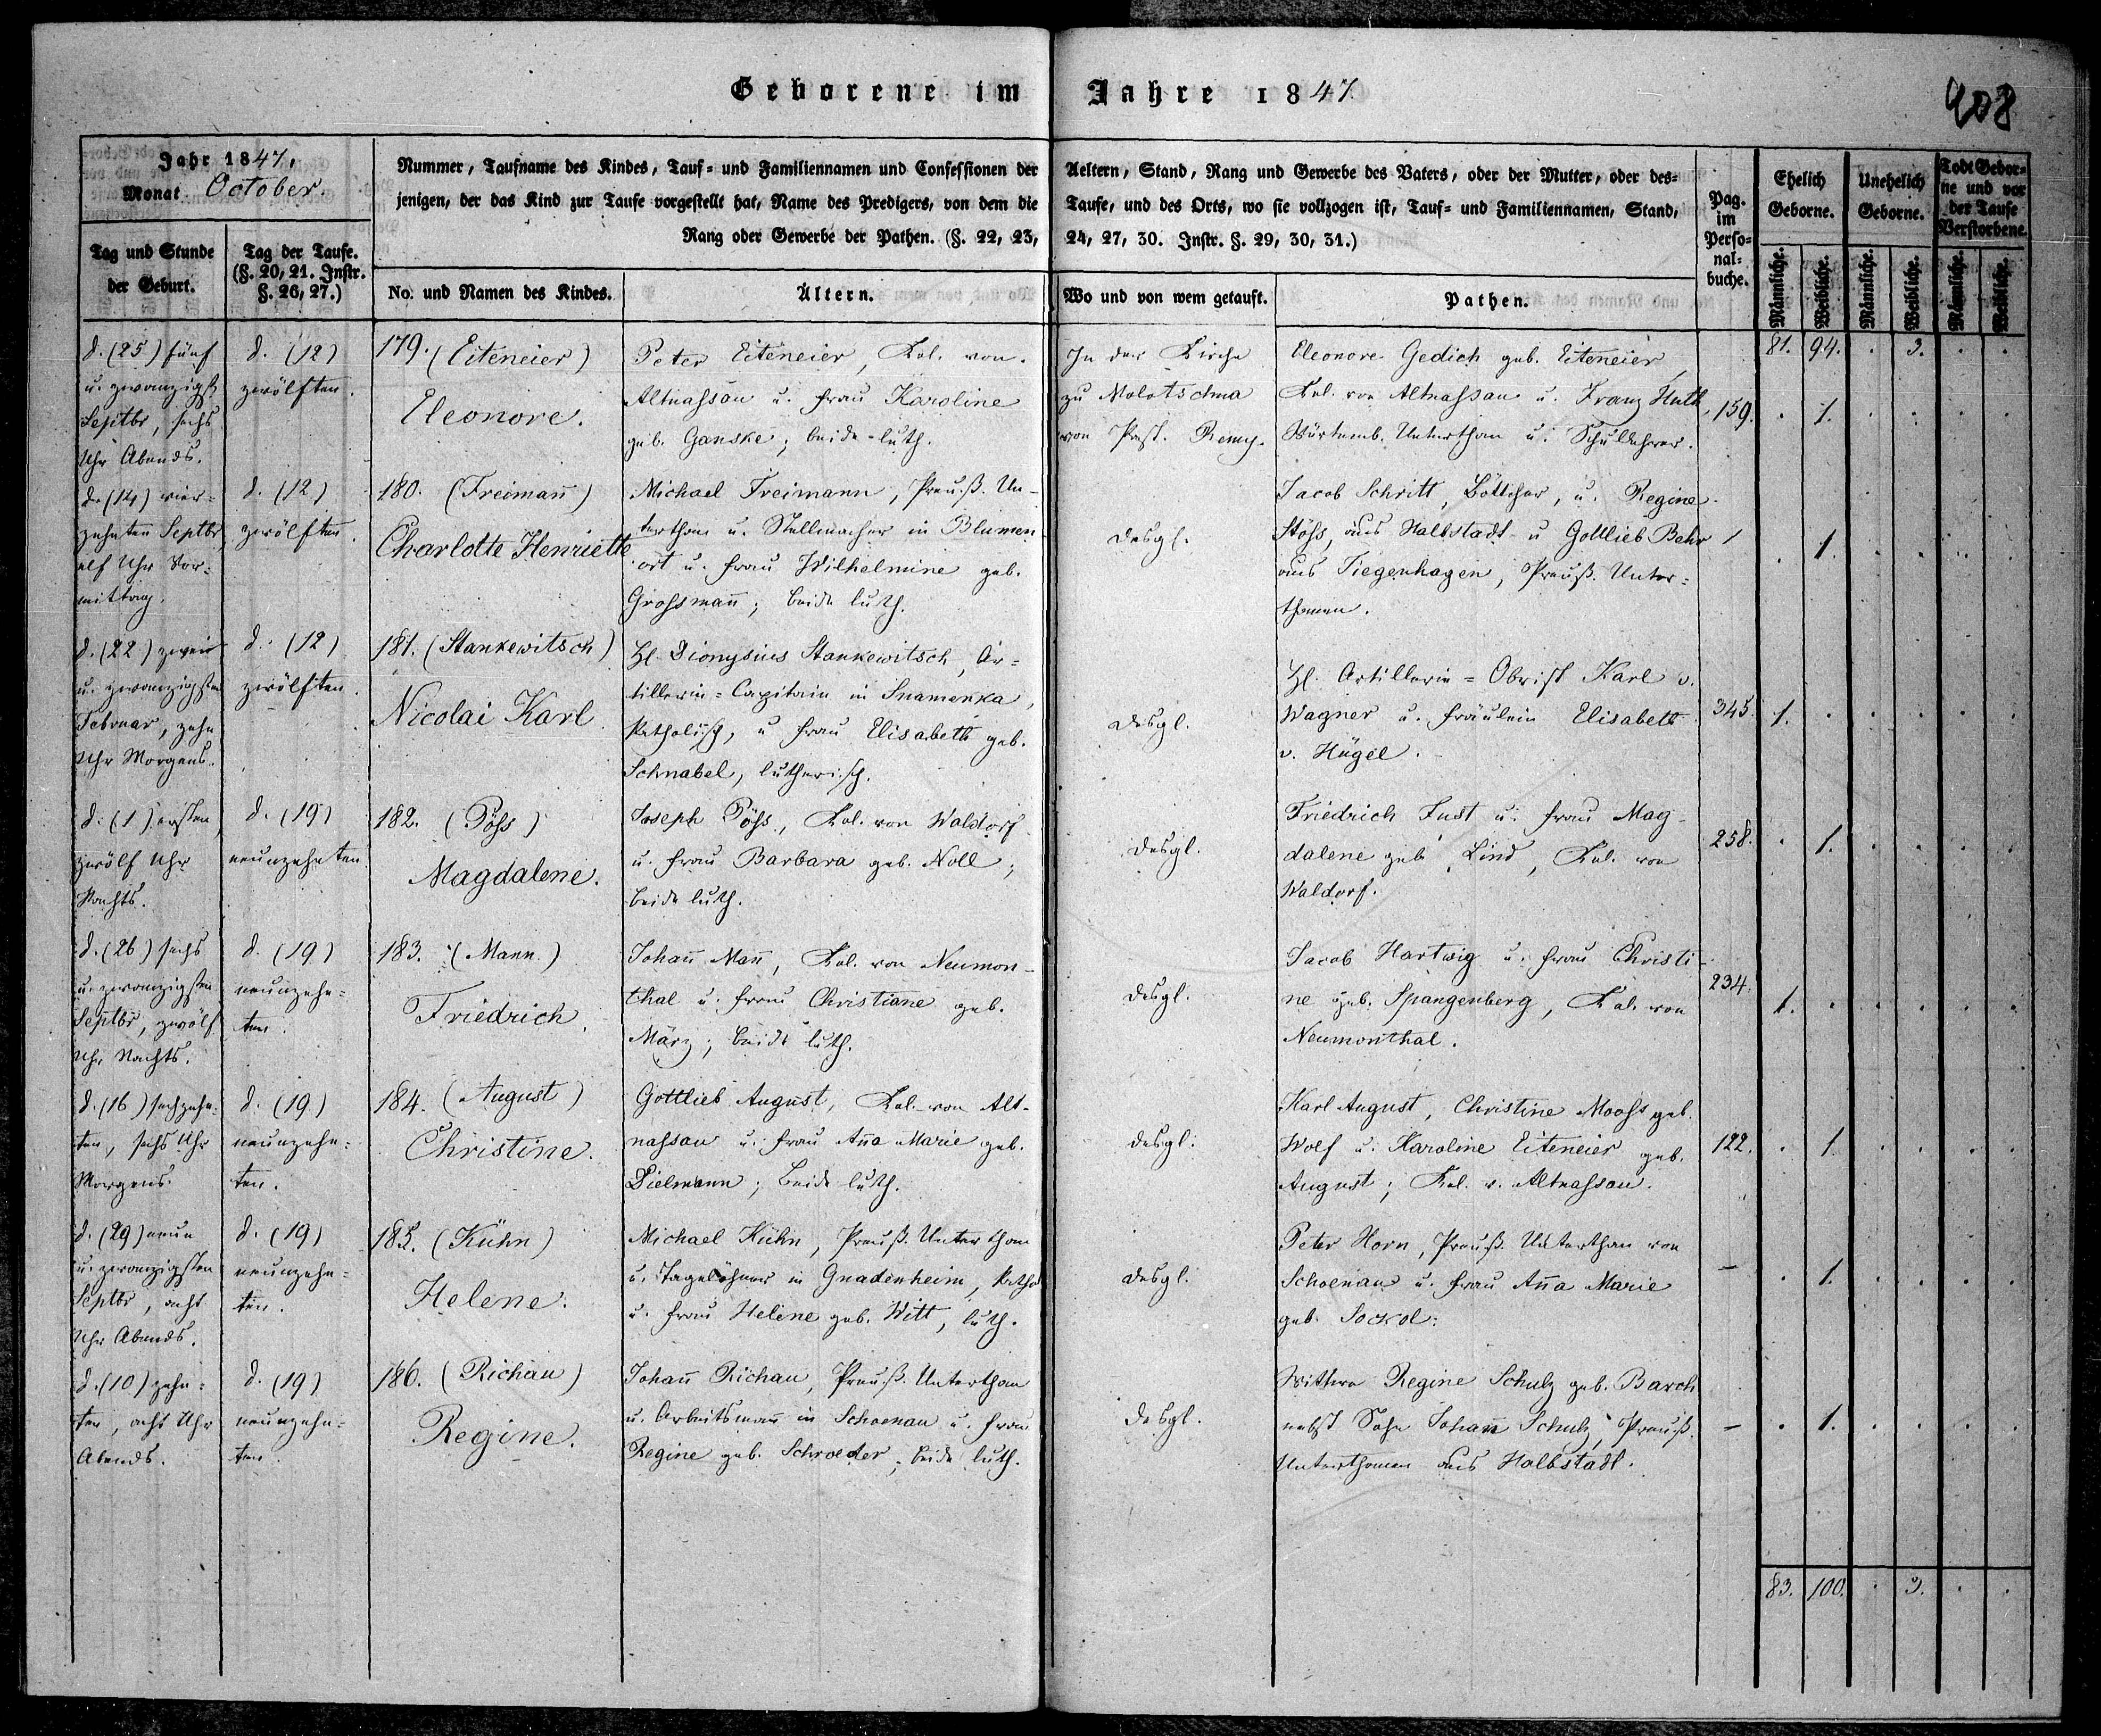 Geborene im Jahre 1847.
408
Jahr 1847,
Monat October.
Tag und Stunde
der Geburt.
Tag der Taufe.
(§. 20, 21. Instr.
§. 26, 27.)
Nummer, Taufname des Kindes, Tauf- und Familiennamen und Confessionen der Aeltern, Stand, Rang und Gewerbe des Vaters, oder der Mutter, oder des-
jenigen, der das Kind zur Taufe vorgestellt hat, Name des Predigers, von dem die Taufe, und des Orts, wo sie vollzogen ist, Tauf- und Familiennamen, Stand,
Rang oder Gewerbe der Pathen. (§. 22, 23, 24, 27, 30. Instr. §. 29, 30, 31.)
No. und Namen des Kindes.
Ältern.
Wo und von wem getauft.
Pathen.
Pag.
im
Perso-
nal-
buche.
Ehelich
Geborne.
Unehelich
Geborne.
Todt Gebor-
ne und vor
der Taufe
Verstorbene.
Männliche.
Weibliche.
Männliche.
Weibliche.
Männliche.
Weibliche.
81. 94. . 3. . .
d. (25) fünf
u. zwanzigst
Septbr, sechs
Uhr Abends.
d. (12)
zwölften.
179. (Eiteneier)
Eleonore.
Peter Eiteneier, Kol. von
Altnassau u. Frau Karoline
geb. Ganske; beide luth.
In der Kirche
zu Molotschna
von Past. Remy.
Eleonore Gedich geb. Eiteneier,
Kol. von Altnassau u. Franz Huth,
Würtemb. Unterthan u. Schullehrer.
159. . 1. . . . .
d. (14) vier-
zehnten Septbr
elf Uhr Vor-
mittag.
d. (12)
zwölften.
180. (Freimañ)
Charlotte Henriette
Michael Freimann, Preuß. Un-
terthan u. Stellmacher in Blumen-
ort u. Frau Wilhelmine geb.
Grossmañ; beide luth.
desgl.
Jacob Schritt, Böttcher, u. Regine
Stöss, aus Halbstadt u Gottlieb Behr
aus Tiegenhagen, Preuß. Unter-
thanen.
/ . 1. . . . .
d. (22) zwei
u. zwanzigsten
Februar, zehn
Uhr Morgens.
d. (12)
zwölften.
181. (Stankewitsch)
Nicolai Karl
H. Dionysius Stankewitsch, Ar-
tillerie-Capitain in Snamenka,
katholisch, u Frau Elisabeth geb.
Schnabel, lutherisch.
desgl.
H. Artillerie-Obrist Karl v.
Wagner u. Fräulein Elisabeth
v. Hügel.
345. 1. . . . . .
d. (1) ersten,
zwölf Uhr
Nachts.
d. (19)
neunzehnten.
182. (Pöss)
Magdalene.
Joseph Pöss, Kol. von Waldorf
u. Frau Barbara geb. Noll;
beide luth.
desgl.
Friedrich Just u. Frau Mag-
dalene geb. Lind, Kol. von
Waldorf.
258. . 1. . . . .
d. (26) sechs
u. zwanzigsten
Septbr, zwölf
Uhr Nachts.
d. (19)
neunzehn-
ten.
183. (Mann.)
Friedrich.
Johañ Mañ, Kol. von Neumon-
thal u. Frau Christiane geb.
März; beide luth.
desgl.
Jacob Hartwig u. Frau Christi-
ne geb. Spangenberg, Kol. von
Neumonthal.
234. 1. . . . . .
d. (16) sechzehn-
ten, sechs Uhr
Morgens.
d. (19)
neunzehn-
ten.
184. (August)
Christine.
Gottlieb August, Kol. von Alt-
nassau u. Frau Añа Marie geb.
Dielmann; beide luth.
desgl.
Karl August, Christine Mooss geb.
Wolf u. Karoline Eiteneier geb.
August; Kol. v. Altnassau.
122. . 1. . . . .
d. (29) neun
u. zwanzigsten
Septbr, acht
Uhr Abends.
d. (19)
neunzehn-
ten.
185. (Kühn)
Helene.
Michael Kühn, Preuß. Unterthan
u. Tagelöhner in Gnadenheim, kathol
u. Frau Helene geb. Witt, luth.
desgl.
Peter Horn, Preuß. Unterthan von
Schoenau u. Frau Añа Marie
geb. Sockol.
– . 1. . . . .
d. (10) zehn-
ten, acht Uhr
Abends.
d. (19)
neunzehn-
ten.
186. (Richau)
Regine.
Johañ Richau, Preuß. Unterthan
u. Arbeitsmañ in Schoenau u. Frau
Regine geb. Schroeder; beide luth.
desgl.
Wittwe Regine Schulz geb. Barch
nebst Sohn Johañ Schulz, Preuß.
Unterthanen aus Halbstadt.
– . 1. . . . .
83. 100. . 3. . .